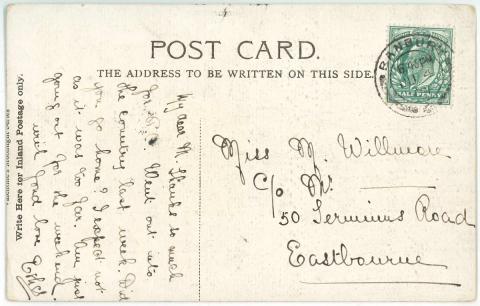 POST CARD.
THE ADDRESS TO BE WRITTEN ON THIS SIDE.
Write Here for Inland Postage only.
My dear M. Thanks so much
for Went out into
the country last week. Did
you go home? I expect not
as it was too far. Am just
going out for the weekend
with fond love
BANBURY
HALF PENNY
Miss M. Willmore
C/o Mr
50 Terminus Road
Eastbourne